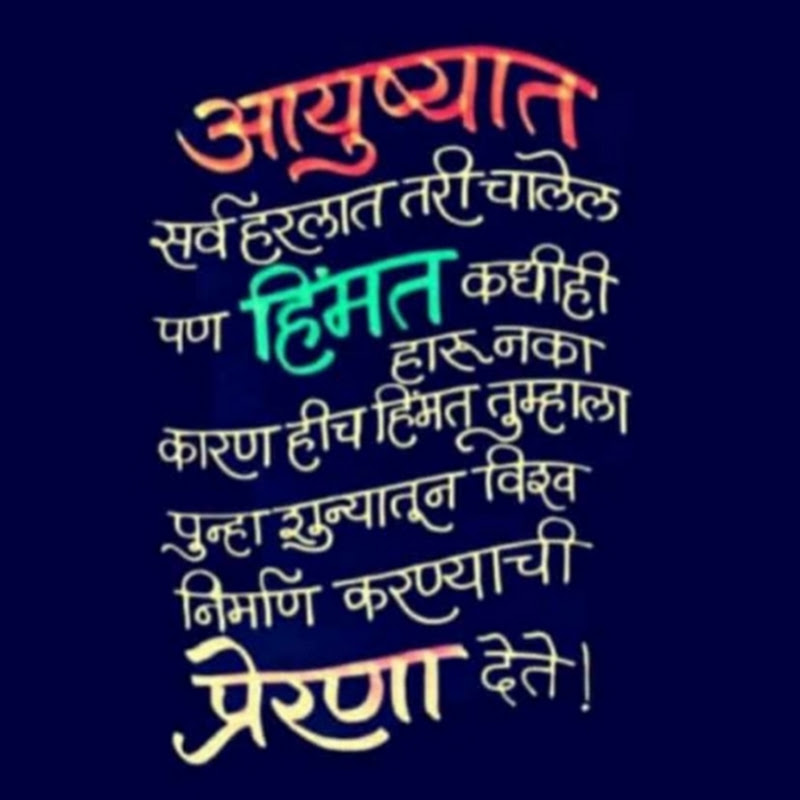 आयुष्यात
सर्व हरलात तरी चालेल
पण हिंमत कधीही
हारू नका
कारण हीच हिंमत तुम्हाला
पुन्हा शुन्यातून विश्व
निर्माण करण्याची
प्रेरणा देते!